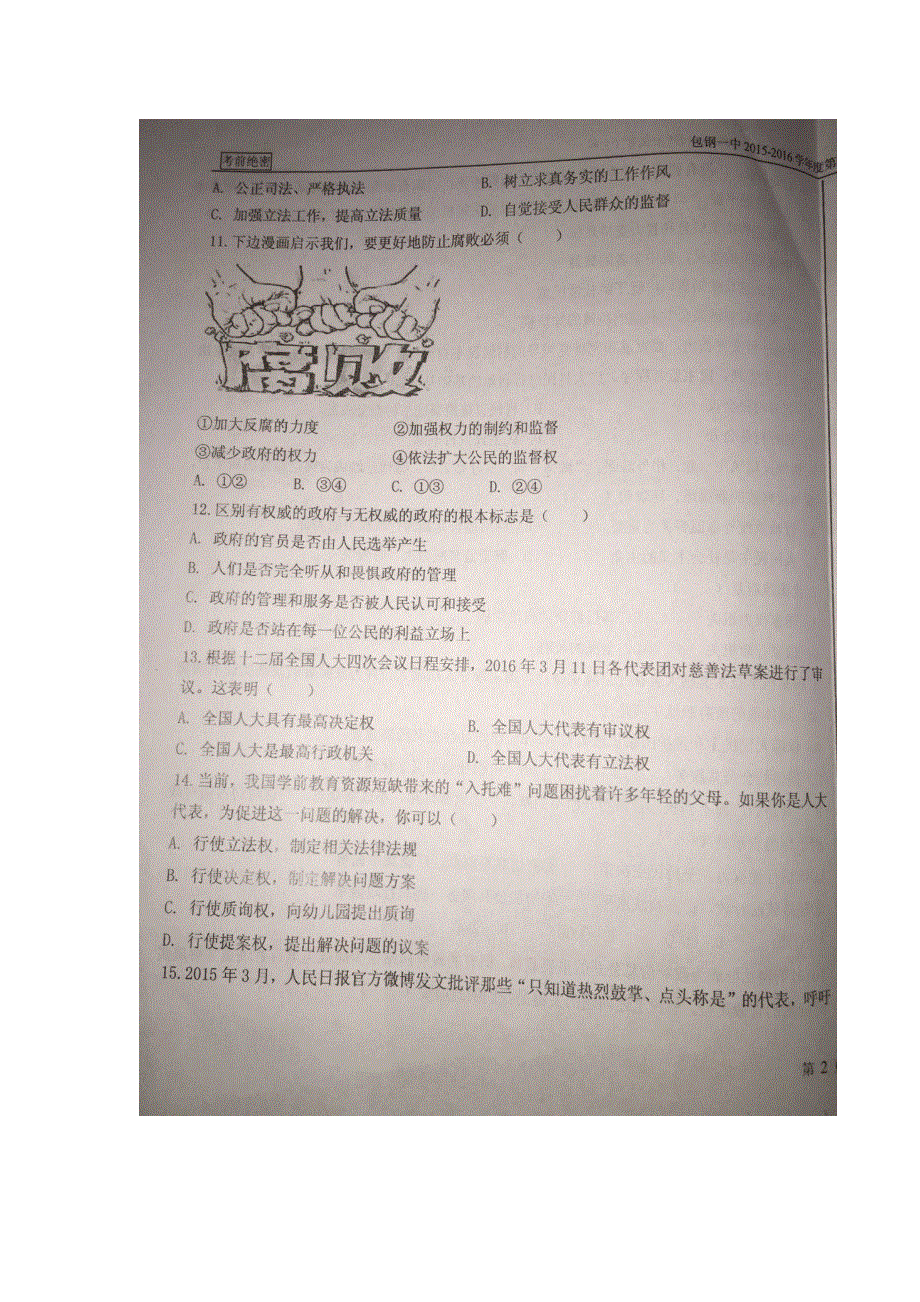 考前绝密
包钢一中 2015-2016 学年度第
A. 公正司法、严格执法 B. 树立求真务实的工作作风
C. 加强立法工作，提高立法质量 D. 自觉接受人民群众的监督
11.下边漫画启示我们，要更好地防止腐败必须（ ）
腐败
①加大反腐的力度 ②加强权力的制约和监督
③减少政府的权力 ④依法扩大公民的监督权
A. ①② B. ③④ C. ①③ D. ②④
12.区别有权威的政府与无权威的政府的根本标志是（ ）
A. 政府的官员是否由人民选举产生
B. 人们是否完全听从和畏惧政府的管理
C. 政府的管理和服务是否被人民认可和接受
D. 政府是否站在每一位公民的利益立场上
13.根据十二届全国人大四次会议日程安排，2016 年 3 月 11 日各代表团对慈善法草案进行了审
议。这表明（ ）
A. 全国人大具有最高决定权 B. 全国人大代表有审议权
C. 全国人大是最高行政机关 D. 全国人大代表有立法权
14.当前，我国学前教育资源短缺带来的“入托难”问题困扰着许多年轻的父母。如果你是人大
代表，为促进这一问题的解决，你可以（ ）
A. 行使立法权，制定相关法律法规
B. 行使决定权，制定解决问题方案
C. 行使质询权，向幼儿园提出质询
D. 行使提案权，提出解决问题的议案
15.2015 年 3 月，人民日报官方微博发文批评那些“只知道热烈鼓掌、点头称是”的代表，呼吁
第 2